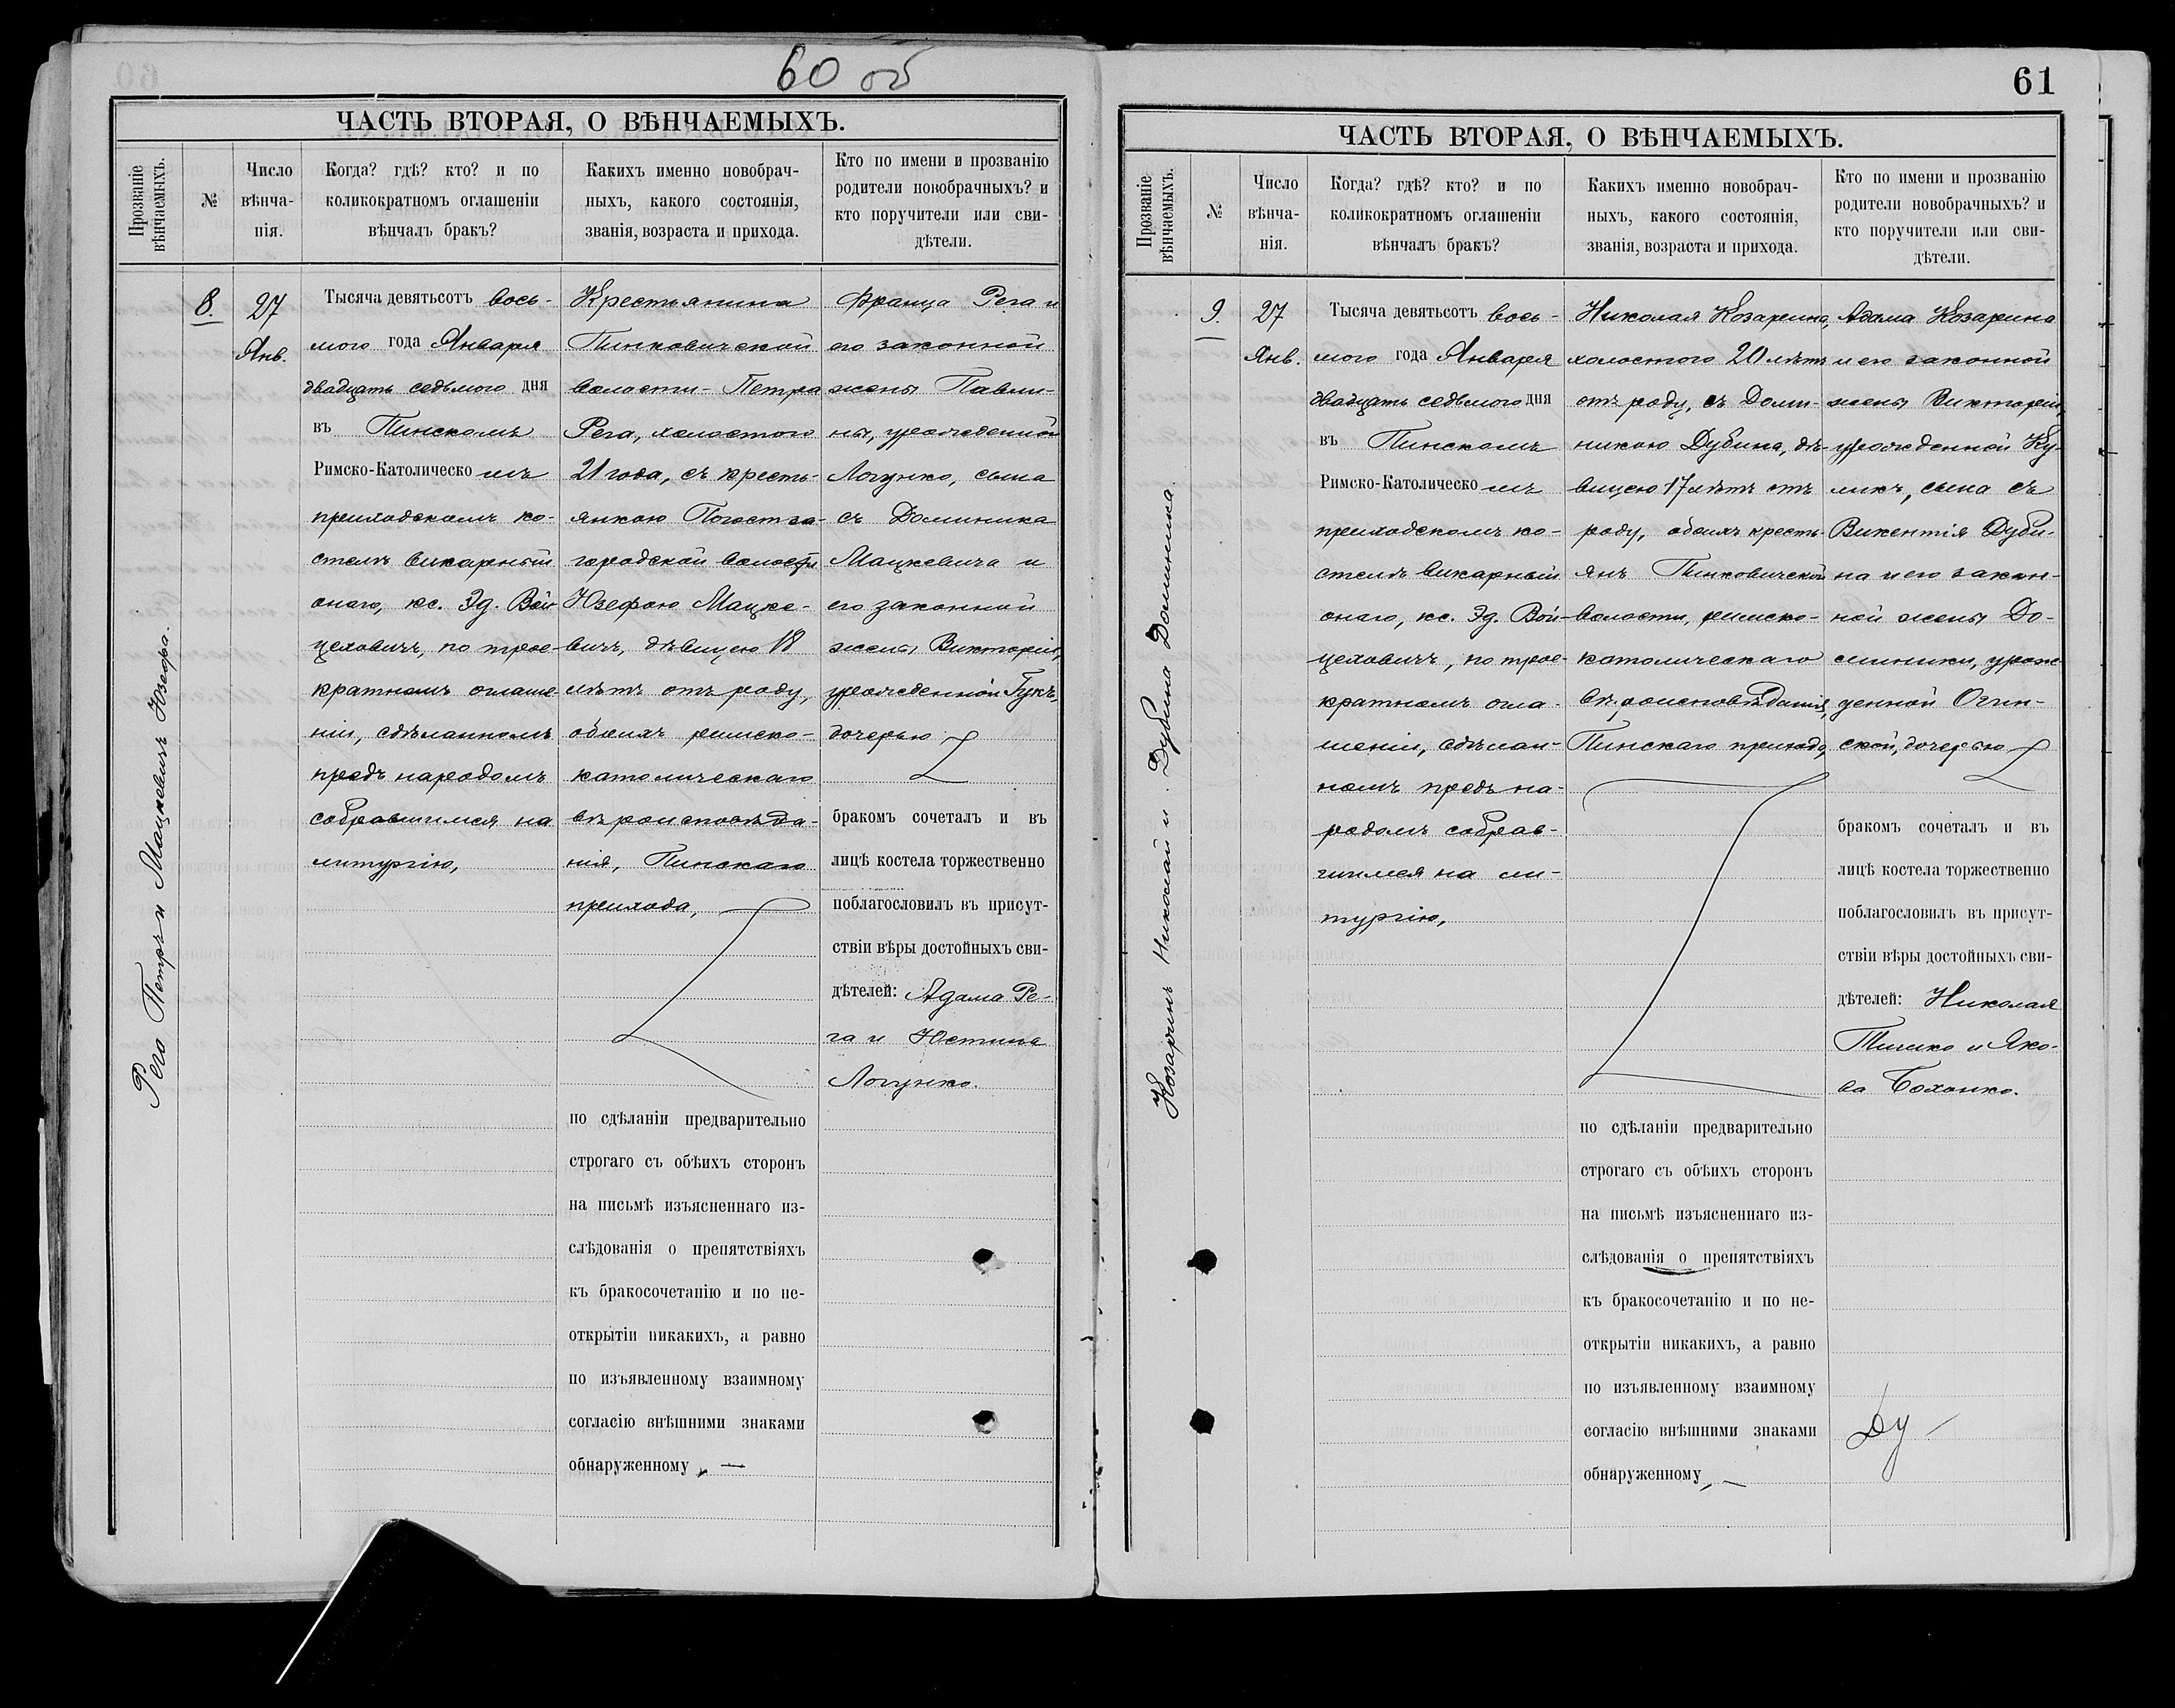 60 об
ЧАСТЬ ВТОРАЯ, О ВѢНЧАЕМЫХЪ.
Прозваніе
вѣнчаемыхъ.
№
Число
вѣнча-
нія.
Когда? гдѣ? кто? и по
коликократномъ оглашеніи
вѣнчалъ бракъ?
Какихъ именно новобрач-
ныхъ, какого состоянія,
званія, возраста и прихода.
Кто по имени и прозванію
родители новобрачныхъ? и
кто поручители или сви-
дѣтели.
Рего Петръ и Мацкевичъ Юзефа.
8.
27
Янв.
Тысяча девятьсотъ вось-
мого года Января
двадцать седьмого дня
въ Пинскомъ
Римско-Католическомъ
приходскомъ ко-
стелѣ викарный
онаго, кс. Эд. Вой-
цеховичъ, по трое-
кратномъ оглаше
ніи, сдѣланномъ
предъ народомъ
собравшимся на
литургію,
Крестьянина
Пинковичской
волости - Петра
Рега, холостого
21 года, съ кресть-
янкою Погост за-
городской волости
Юзефою Мацке-
вичъ, дѣвицею 18
лѣтъ отъ роду,
обоихъ римско-
католическаго
вѣроисповѣда-
нія, Пинскаго
прихода,
по сдѣланіи предварительно
строгаго съ обѣихъ сторонъ
на письмѣ изъясненнаго из-
слѣдованія о препятствіяхъ
къ бракосочетанію и по не-
открытіи никакихъ, а равно
по изъявленному взаимному
согласію внѣшними знаками
обнаруженному, —
Франца Рега и
его законной
жены Павли-
ны, урожденной
Логунко, сына
съ Доминика
Мацкевича и
его законной
жены Викторіи,
урожденной Гукъ,
дочерью
бракомъ сочеталъ и въ
лицѣ костела торжественно
поблагословилъ въ присут-
ствіи вѣры достойныхъ сви-
дѣтелей: Адама Ре-
га и Юстина
Логунко.
61
ЧАСТЬ ВТОРАЯ, О ВѢНЧАЕМЫХЪ.
Прозваніе
вѣнчаемыхъ.
№
Число
вѣнча-
нія.
Когда? гдѣ? кто? и по
коликократномъ оглашеніи
вѣнчалъ бракъ?
Какихъ именно новобрач-
ныхъ, какого состоянія,
званія, возраста и прихода.
Кто по имени и прозванію
родители новобрачныхъ? и
кто поручители или сви-
дѣтели.
Козаринъ Николай и Дубина Доминика.
9.
27
Янв.
Тысяча девятьсотъ вось-
мого года Января
двадцать седьмого дня
въ Пинскомъ
Римско-Католическомъ
приходскомъ ко-
стелѣ викарный
онаго, кс. Эд. Вой-
цеховичъ, по трое-
кратномъ огла-
шеніи, сдѣлан-
номъ предъ на-
родомъ собрав-
шимся на ли-
тургію,
Николая Козарина,
холостого 20 лѣтъ
отъ роду, съ Доми-
никою Дубина, дѣ-
вицею 17 лѣтъ отъ
роду, обоихъ кресть-
янъ Пинковичской
волости, римско-
католическаго
вѣроисповѣданія,
Пинскаго прихода,
по сдѣланіи предварительно
строгаго съ обѣихъ сторонъ
на письмѣ изъясненнаго из-
слѣдованія о препятствіяхъ
къ бракосочетанію и по не-
открытіи никакихъ, а равно
по изъявленному взаимному
согласію внѣшними знаками
обнаруженному, —
Адама Козарина
и его законной
жены Викторіи,
урожденной Ку-
ликъ, сына съ
Викентія Дуби-
на и его закон-
ной жены До-
миники, урож-
денной Огин-
ской, дочерью
бракомъ сочеталъ и въ
лицѣ костела торжественно
поблагословилъ въ присут-
ствіи вѣры достойныхъ сви-
дѣтелей: Николая
и Яко-
ва Бохонко.